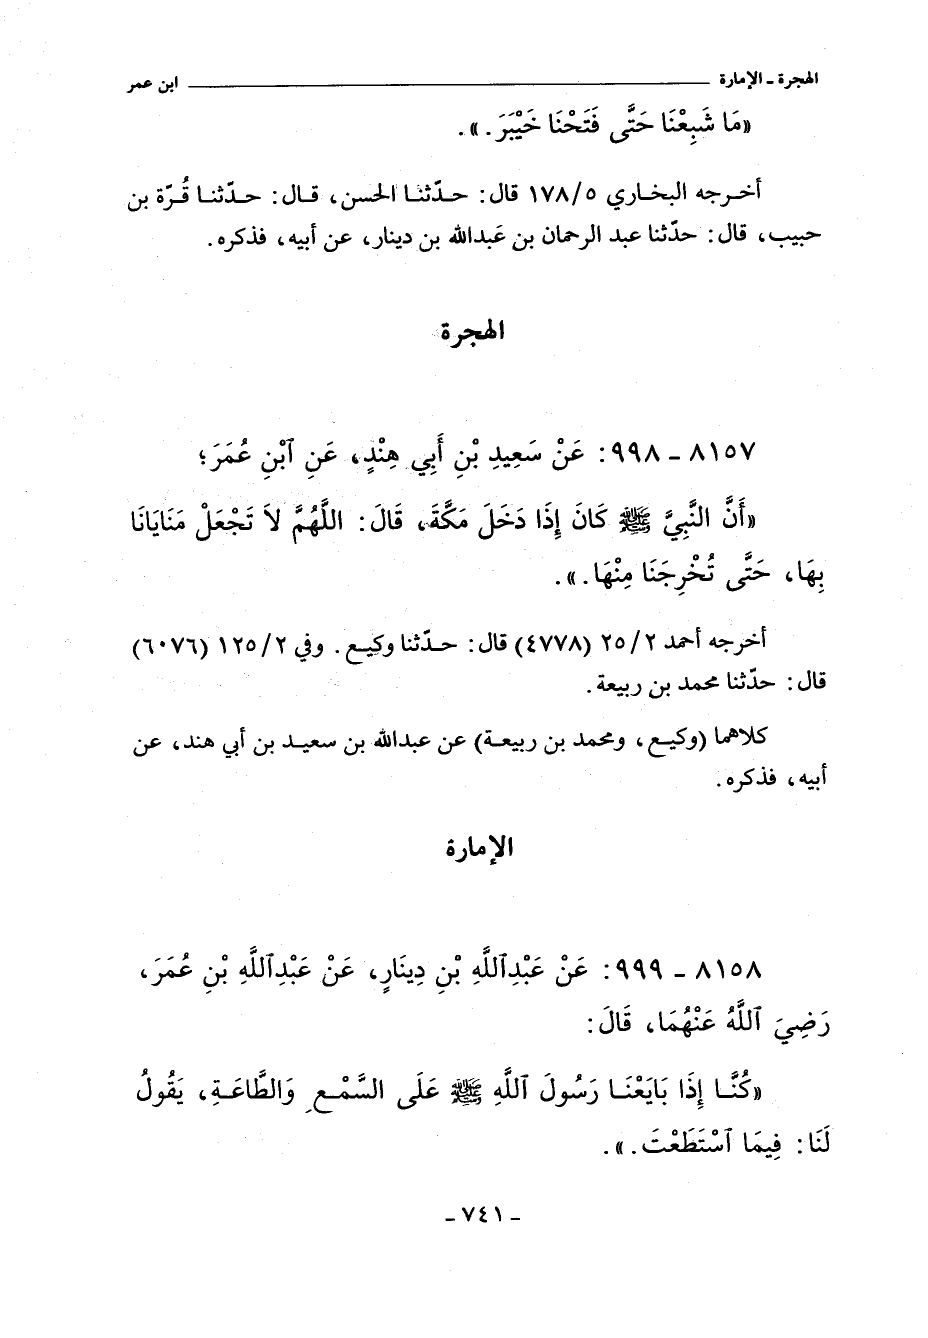 الهجرة - الإمارة ــــــــــ ابن عمر
«مَا شَبِعْنَا حَتَّى فَتَحْنَا خَيْبَرَ.».
أخرجه البخاري ١٧٨/٥ قال: حدّثنا الحسن، قال: حدّثنا قُرّة بن
حبيب، قال: حدّثنا عبد الرحمان بن عَبدالله بن دينار، عن أبيه، فذكره.
الهجرة
٨١٥٧ - ٩٩٨: عَنْ سَعِيدِ بْنِ أَبِي هِنْدٍ، عَنِ ٱبْنِ عُمَرَ؛
«أَنَّ النَّبِيَّ ﷺ كَانَ إِذَا دَخَلَ مَكَّةَ، قَالَ: اللَّهُمَّ لاَ تَجْعَلْ مَنَايَانَا
بِهَا، حَتَّى تُخْرِجَنَا مِنْهَا.».
أخرجه أحمد ٢٥/٢ (٤٧٧٨) قال: حدّثنا وكيع. وفي ١٢٥/٢ (٦٠٧٦)
قال: حدّثنا محمد بن ربيعة.
كلاهما (وكيع، ومحمد بن ربيعة) عن عبدالله بن سعيد بن أبي هند، عن
أبيه، فذكره.
الإمارة
٨١٥٨ - ٩٩٩: عَنْ عَبْدِٱللَّهِ بْنِ دِينَارٍ، عَنْ عَبْدِٱللَّهِ بْنِ عُمَرَ،
رَضِيَ ٱللَّهُ عَنْهُمَا، قَالَ:
«كُنَّا إِذَا بَايَعْنَا رَسُولَ ٱللَّهِ ﷺ عَلَى السَّمْعِ وَالطَّاعَةِ، يَقُولُ
لَنَا: فِيمَا ٱسْتَطَعْتَ.».
- ٧٤١ -